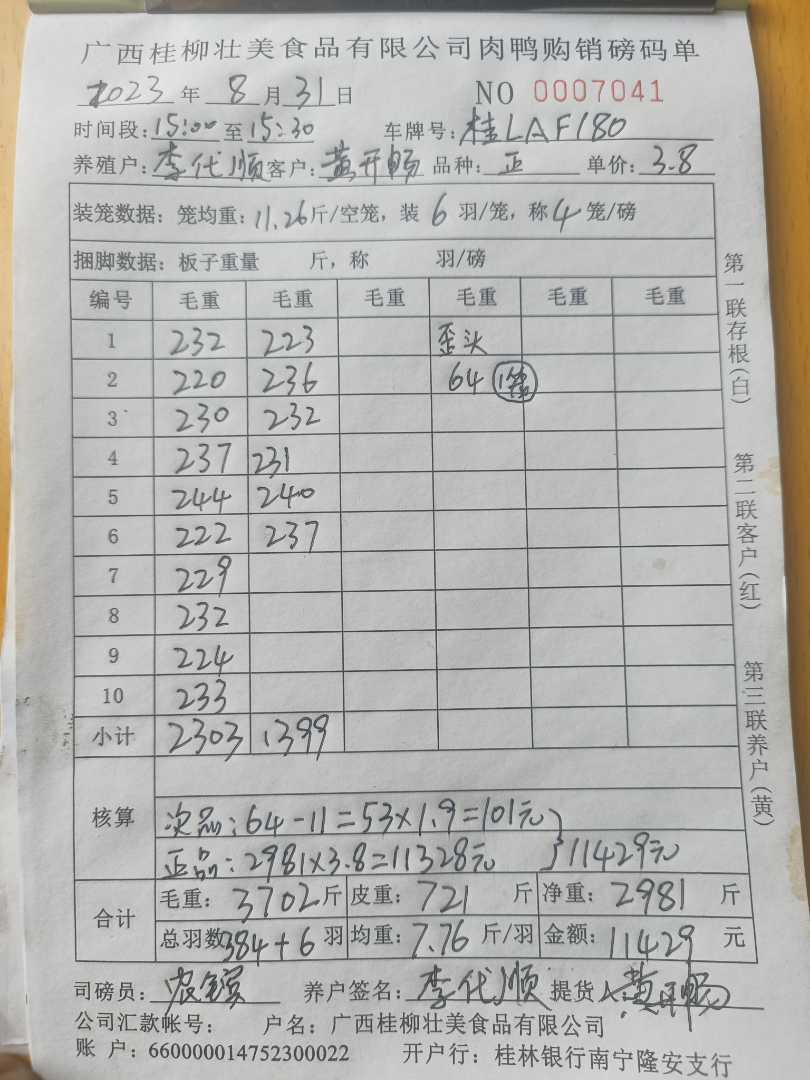 广西桂柳壮美食品有限公司肉鸭购销磅码单
2023 年 8 月 31 日 NO 0007041
时间段: 15:00 至 15:30 车牌号: 桂LAF180
养殖户: 李代顺 客户: 黄开畅 品种: 正 单价: 3.8
装笼数据: 笼均重: 11.26 斤/空笼, 装 6 羽/笼, 称 4 笼/磅
捆脚数据: 板子重量 斤, 称 羽/磅
编号 毛重 毛重 毛重 毛重 毛重 毛重
1 232 223 歪头
2 220 236 64 1笼
3 230 232
4 237 231
5 244 240
6 222 237
7 229
8 232
9 224
10 233
小计 2303 1399
核算
次品: 64-11=53×1.9=101元
正品: 2981×3.8=11328元 } 11429元
合计
毛重: 3702 斤 皮重: 721 斤 净重: 2981 斤
总羽数 384+6 羽 均重: 7.76 斤/羽 金额: 11429 元
司磅员: 养户签名: 李代顺 提货人 黄开畅
公司汇款帐号: 户名: 广西桂柳壮美食品有限公司
账 户: 660000014752300022 开户行: 桂林银行南宁隆安支行
第一联存根(白)
第二联客户(红)
第三联养户(黄)